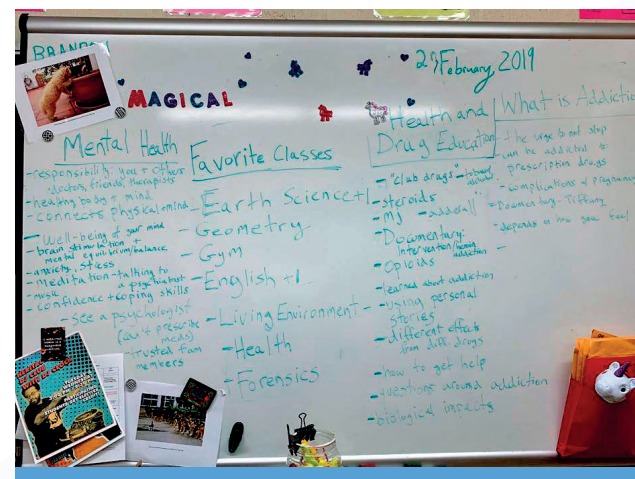 BRANDON
27 February, 2019
MAGICAL
Mental Health
- responsibility: you + others
doctors, friends, therapists
- healthy body + mind
- connects physical + mind
- Well-being of your mind
- brain stimulation +
mental equilibrium/balance
- anxiety, stress
- meditation - talking to
a psychiatrist
- music
- confidence + coping skills
- see a psychologist
(can't prescribe
meds)
- trusted fam
members
Favorite Classes
- Earth Science +1
- Geometry
- Gym
- English +1
- Living Environment -
- Health
- Forensics
Health and
Drug Education
- "club drugs" -
- steroids
- MJ - adderall
- Documentary:
Intervention/
addiction
- opioids
- learned about addiction
- using personal
stories
- different effects
from diff. drugs
- how to get help
- questions around addiction
- biological impacts
What is Addiction
- the urge to not stop
can be addicted to
prescription drugs
- complications of pregnancy
- Documentary - Tiffany
- depends on how you feel
-